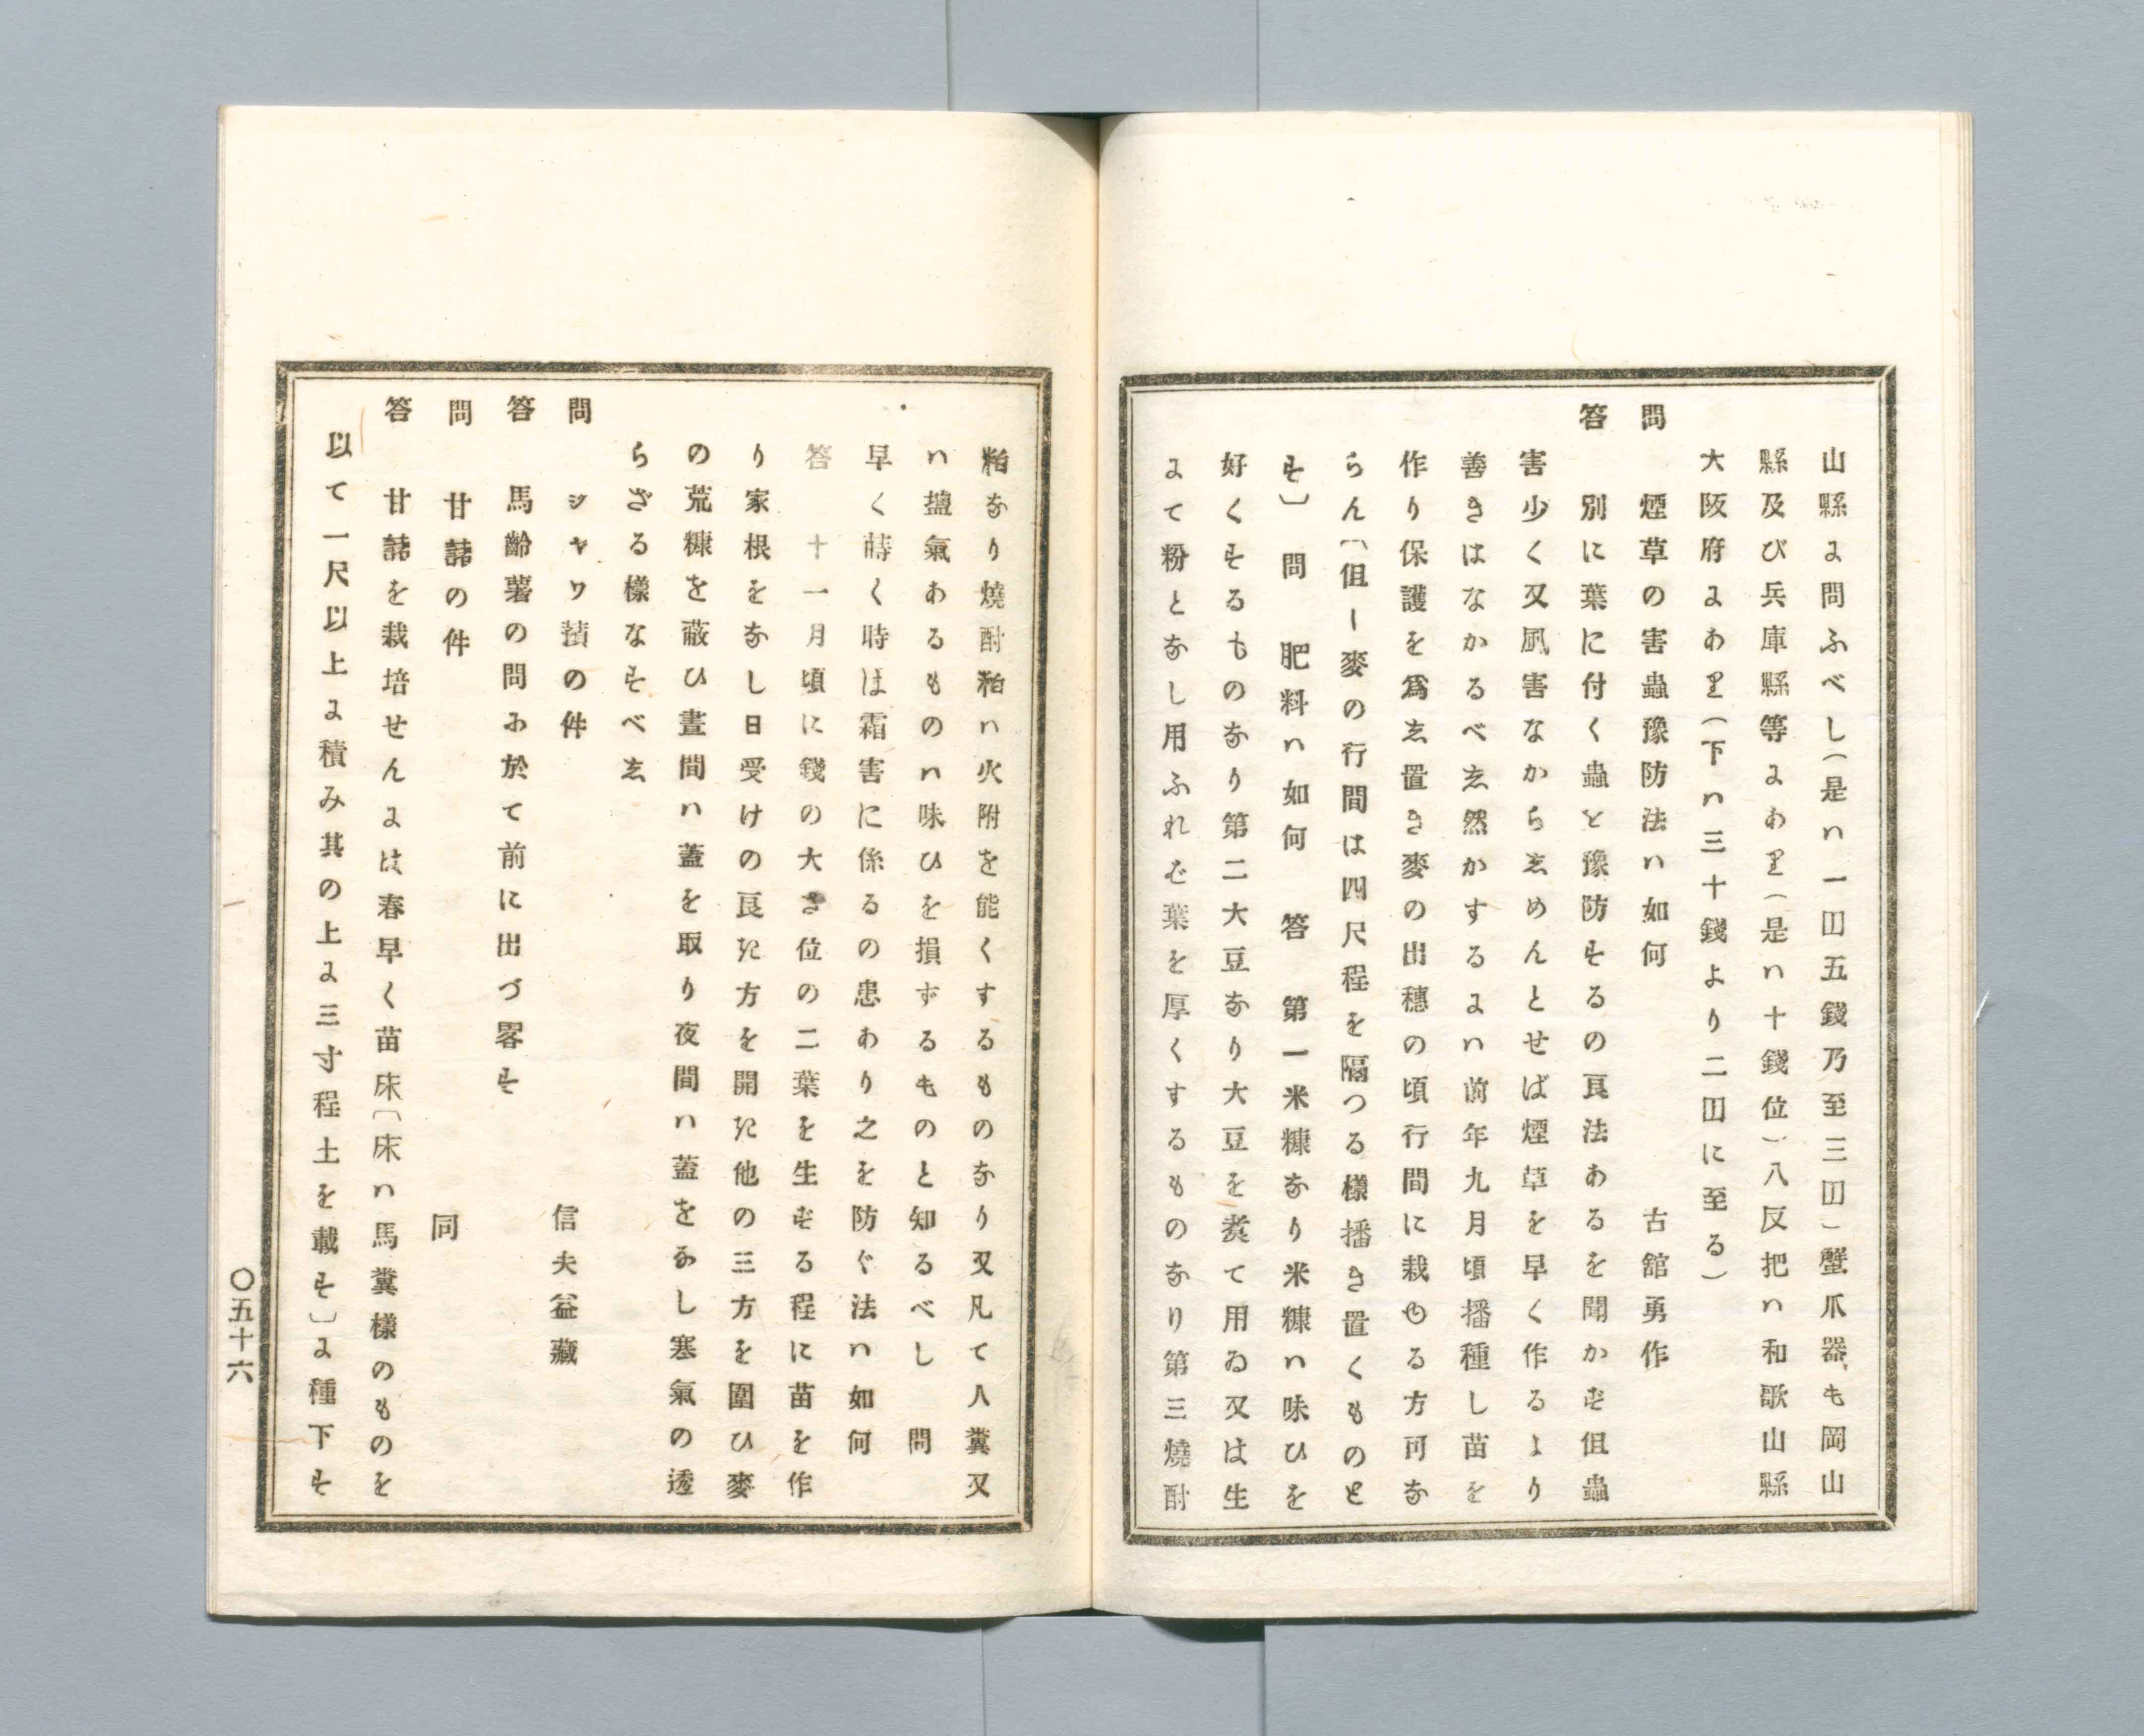 山縣に問ふべし（是ハ一円五錢乃至三円）蟹爪器も岡山
縣及び兵庫縣等にあり（是ハ十錢位）八反把ハ和歌山縣
大阪府にあり（下ハ三十錢より二円に至る）
問　煙草の害蟲豫防法ハ如何　古舘勇作
答　別に葉に付く蟲を豫防するの良法あるを聞かず但蟲
害少く又風害なからしめんとせば煙草を早く作るより
善きはなかるべし然かするにハ前年九月頃播種し苗を
作り保護を爲し置き麥の出穗の頃行間に栽もる方可な
らん〔但し麥の行間は四尺程を隔つる樣播き置くものと
す〕　問　肥料ハ如何　答　第一米糠なり米糠ハ味ひを
好くするものなり第二大豆なり大豆を煑て用ゐ又は生
にて粉となし用ふれば葉を厚くするものなり第三燒酎
粕なり燒酎粕ハ火附を能くするものなり又凡て人糞又
ハ鹽氣あるものハ味ひを損ずるものと知るべし　問
早く蒔く時は霜害に係るの患あり之を防ぐ法ハ如何
答　十一月頃に錢の大さ位の二葉を生ずる程に苗を作
り家根をなし日受けの良た方を開た他の三方を圍ひ麥
の荒糠を蔽ひ晝間ハ蓋を取り夜間ハ蓋をなし寒氣の透
らざる樣なすべし
問　ジャワ藷の件　信夫益藏
答　馬齡薯の問に於て前に出づ畧す
問　甘藷の件　同
答　甘藷を栽培せんには春早く苗床〔床ハ馬糞樣のものを
以て一尺以上に積み其の上に三寸程土を載す〕に種下す
〇五十六